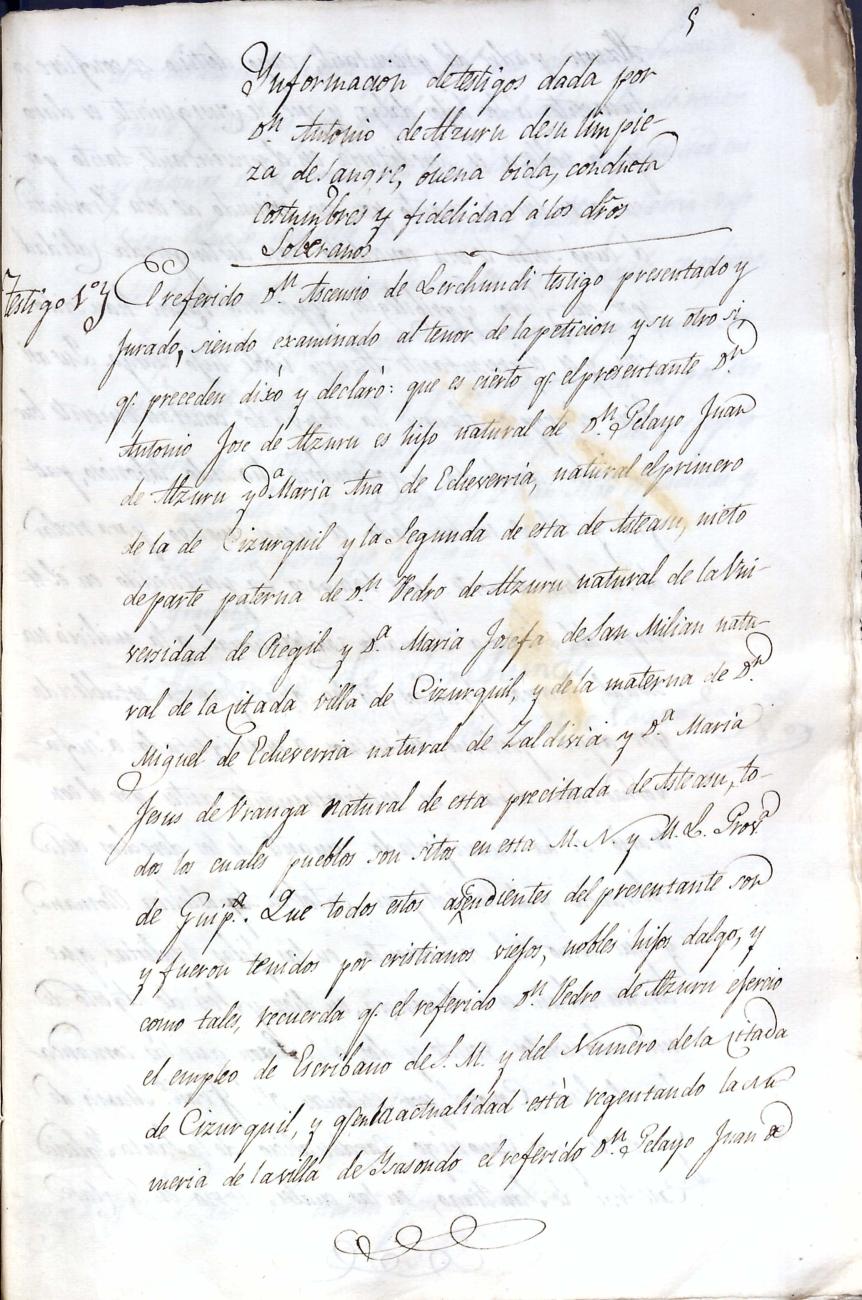 5
Ynformacion de testigos dada por
Dn. Antonio de Alzuru de su limpie-
za de Sangre, buena bida, conducta
costumbres y fidelidad á los dros
Soberanos
Testigo 1º y El referido Dn. Ascensio de Lerchundi testigo presentado y
jurado, siendo examinado al tenor de la peticion y su otro si,
q.e preceden dixò y declarò: que es cierto q.e el presentante Dn.
Antonio Jose de Alzuru es hijo natural de Dn. Pelayo Juan
de Alzuru y Dª Maria Ana de Echeverria, natural el primero
de la de Cizurquil y la Segunda de esta de Asteasu, nieto
de parte paterna de Dn. Pedro de Alzuru natural de la Vni-
versidad de Regil y Dª. Maria Josefa de San Milian natu-
ral de la citada villa de Cizurquil, y de la materna de Dn.
Miguel de Echeverria natural de Zaldivia y Dª. Maria
Jesus de Vranga natural de esta precitada de Asteasu, to-
dos los cuales pueblos son sitos en esta M. N. y M. L. Provª
de Guipª. Que todos estos asendientes del presentante son
y fueron tenidos por cristianos viejos, nobles hijos dalgo, y
como tales, recuerda q.e el referido Dn. Pedro de Alzuru ejercio
el empleo de Escribano de S. M. y del Numero de la citada
de Cizurquil, y q.e en la actualidad està regentando la Nu
meria de la villa de Ysasondo el referido Dn. Pelayo Juan de